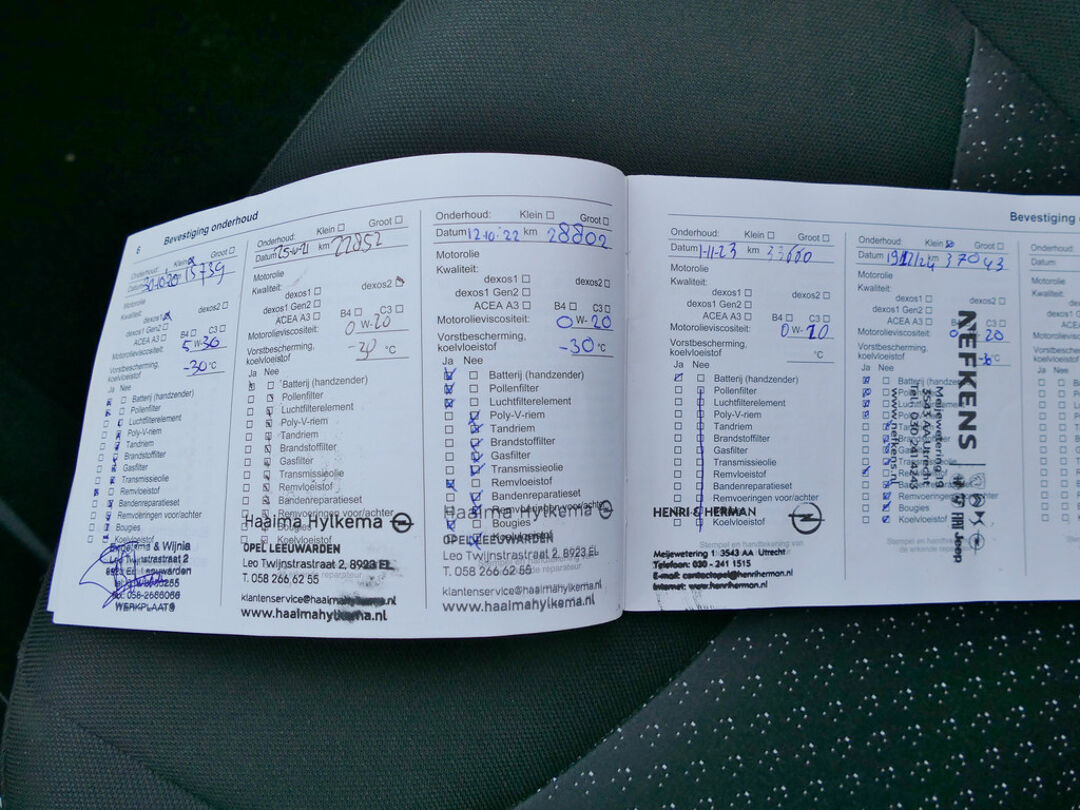 6
Bevestiging onderhoud
Onderhoud: Klein Groot
Datum 30-10-20 15739
Motorolie
Kwaliteit:
dexos1 dexos2
dexos1 Gen2
ACEA A3 B4 C3
Motorolieviscositeit: 5 W-30
Vorstbescherming,
koelvloeistof -30 °C
Ja Nee
Batterij (handzender)
Pollenfilter
Luchtfilterelement
Poly-V-riem
Tandriem
Brandstoffilter
Gasfilter
Transmissieolie
Remvloeistof
Bandenreparatieset
Remvoeringen voor/achter
Bougies
Koelvloeistof
& Wijnia
Leo Twijnstrastraat 2
Leeuwarden
058-2666066
WERKPLAATS
Onderhoud: Klein Groot
Datum km 22852
Motorolie
Kwaliteit:
dexos1 dexos2
dexos1 Gen2
ACEA A3 B4 C3
Motorolieviscositeit: 0 W-20
Vorstbescherming,
koelvloeistof -30 °C
Ja Nee
Batterij (handzender)
Pollenfilter
Luchtfilterelement
Poly-V-riem
Tandriem
Brandstoffilter
Gasfilter
Transmissieolie
Remvloeistof
Bandenreparatieset
Remvoeringen voor/achter
Bougies
Koelvloeistof
Haaima Hylkema
OPEL LEEUWARDEN
Leo Twijnstrastraat 2, 8923 EL
T. 058 266 62 55
klantenservice@haaimahylkema.nl
www.haaimahylkema.nl
Onderhoud: Klein Groot
Datum 12-10-'22 km 28802
Motorolie
Kwaliteit:
dexos1 dexos2
dexos1 Gen2
ACEA A3 B4 C3
Motorolieviscositeit: 0 W-20
Vorstbescherming,
koelvloeistof -30 °C
Ja Nee
Batterij (handzender)
Pollenfilter
Luchtfilterelement
Poly-V-riem
Tandriem
Brandstoffilter
Gasfilter
Transmissieolie
Remvloeistof
Bandenreparatieset
Remvoeringen voor/achter
Bougies
Koelvloeistof
Haaima Hylkema
OPEL LEEUWARDEN
Leo Twijnstrastraat 2, 8923 EL
T. 058 266 62 55
klantenservice@haaimahylkema.nl
www.haaimahylkema.nl
Bevestiging
Onderhoud: Klein Groot
Datum 1-11-23 km
Motorolie
Kwaliteit:
dexos1 dexos2
dexos1 Gen2
ACEA A3 B4 C3
Motorolieviscositeit: 0 W-20
Vorstbescherming,
koelvloeistof °C
Ja Nee
Batterij (handzender)
Pollenfilter
Luchtfilterelement
Poly-V-riem
Tandriem
Brandstoffilter
Gasfilter
Transmissieolie
Remvloeistof
Bandenreparatieset
Remvoeringen voor/achter
Koelvloeistof
HENRI & HERMAN
Stempel en handtekening van
Meijewetering 1 3543 AA Utrecht
Telefoon: 030 - 241 1515
E-mail: contactopel@henriherman.nl
Internet: www.henriherman.nl
Onderhoud: Klein Groot
Datum km 37043
Motorolie
Kwaliteit:
dexos1 dexos2
dexos1 Gen2
ACEA A3 C3
Motorolieviscositeit: 0 20
Vorstbescherming,
koelvloeistof °C
Ja Nee
Batterij (handzender)
Koelvloeistof
NEFKENS
Meijewetering
3543 AA Utrecht
www.nefkens.nl
Jeep
Onderhoud:
Datum
Motorolie
Kwaliteit:
Motorolieviscositeit:
Vorstbescherming,
koelvloeistof
Ja Nee